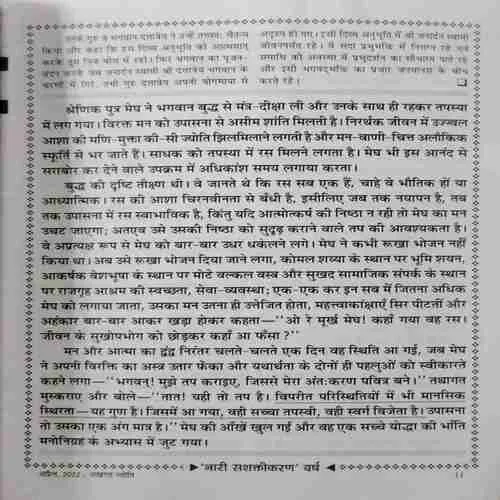 उनके गुरु व भगवान दत्तात्रेय ने उन्हें तपस्या, चैतन्य
किया और कहा कि इस दिव्य अनुभूति को आत्मसात्
करके तुम निज बोध में रहो। फिर भगवान का पूजन-
वंदन करके जब जनार्दन स्वामी श्री दत्तात्रेय भगवान के
चरणों में गिरे, तभी गुरु दत्तात्रेय अपनी योगमाया से
अदृश्य हो गए। इसी दिव्य अनुभूति में श्री जनार्दन स्वामी
जीवनपर्यंत रहे। वे सदा प्रभुभक्ति में निमग्न रहे एवं
समाधि की अवस्था में प्रभुदर्शन का सौभाग्य पाते रहे
और इसी भगवद्भक्ति का प्रचार जनमानस के बीच
करते रहे।
श्रेणिक पुत्र मेघ ने भगवान बुद्ध से मंत्र-दीक्षा ली और उनके साथ ही रहकर तपस्या
में लग गया। विरक्त मन को उपासना से असीम शांति मिलती है। निरर्थक जीवन में उज्ज्वल
आशा की मणि-मुक्ता की-सी ज्योति झिलमिलाने लगती है और मन-वाणी-चित्त अलौकिक
स्फूर्ति से भर जाते हैं। साधक को तपस्या में रस मिलने लगता है। मेघ भी इस आनंद से
सराबोर कर देने वाले उपक्रम में अधिकांश समय लगाया करता।
बुद्ध की दृष्टि तीक्ष्ण थी। वे जानते थे कि रस सब एक हैं, चाहे वे भौतिक हों या
आध्यात्मिक। रस की आशा चिरनवीनता से बँधी है, इसीलिए जब तक नयापन है, तब
तक उपासना में रस स्वाभाविक है, किंतु यदि आत्मोत्कर्ष की निष्ठा न रही तो मेघ का मन
उचट जाएगा; अतएव उसे उसकी निष्ठा को सुदृढ़ कराने वाले तप की आवश्यकता है।
वे अप्रत्यक्ष रूप से मेघ को बार-बार उधर धकेलने लगे। मेघ ने कभी रूखा भोजन नहीं
किया था। अब उसे रूखा भोजन दिया जाने लगा, कोमल शय्या के स्थान पर भूमि शयन,
आकर्षक वेशभूषा के स्थान पर मोटे वल्कल वस्त्र और सुखद सामाजिक संपर्क के स्थान
पर राजगृह आश्रम की स्वच्छता, सेवा-व्यवस्था; एक-एक कर इन सब में जितना अधिक
मेघ को लगाया जाता, उसका मन उतना ही उत्तेजित होता, महत्त्वाकांक्षाएँ सिर पीटतीं और
अहंकार बार-बार आकर खड़ा होकर कहता—''ओ रे मूर्ख मेघ! कहाँ गया वह रस।
जीवन के सुखोपभोग को छोड़कर कहाँ आ फँसा?''
मन और आत्मा का द्वंद्व निरंतर चलते-चलते एक दिन वह स्थिति आ गई, जब मेघ
ने अपनी विरक्ति का अस्त्र उतार फेंका और यथार्थता के दोनों ही पहलुओं को स्वीकारते
कहने लगा—''भगवन्! मुझे तप कराइए, जिससे मेरा अंतःकरण पवित्र बने।'' तथागत
मुस्कराए और बोले—''तात! यही तो तप है। विपरीत परिस्थितियों में भी मानसिक
स्थिरता—यह गुण है। जिसमें आ गया, वही सच्चा तपस्वी, वही स्वर्ग विजेता है। उपासना
तो उसका एक अंग मात्र है।'' मेघ की आँखें खुल गईं और वह एक सच्चे योद्धा की भाँति
मनोनिग्रह के अभ्यास में जुट गया।
'नारी सशक्तीकरण' वर्ष
अप्रैल, 2022 : अखण्ड ज्योति